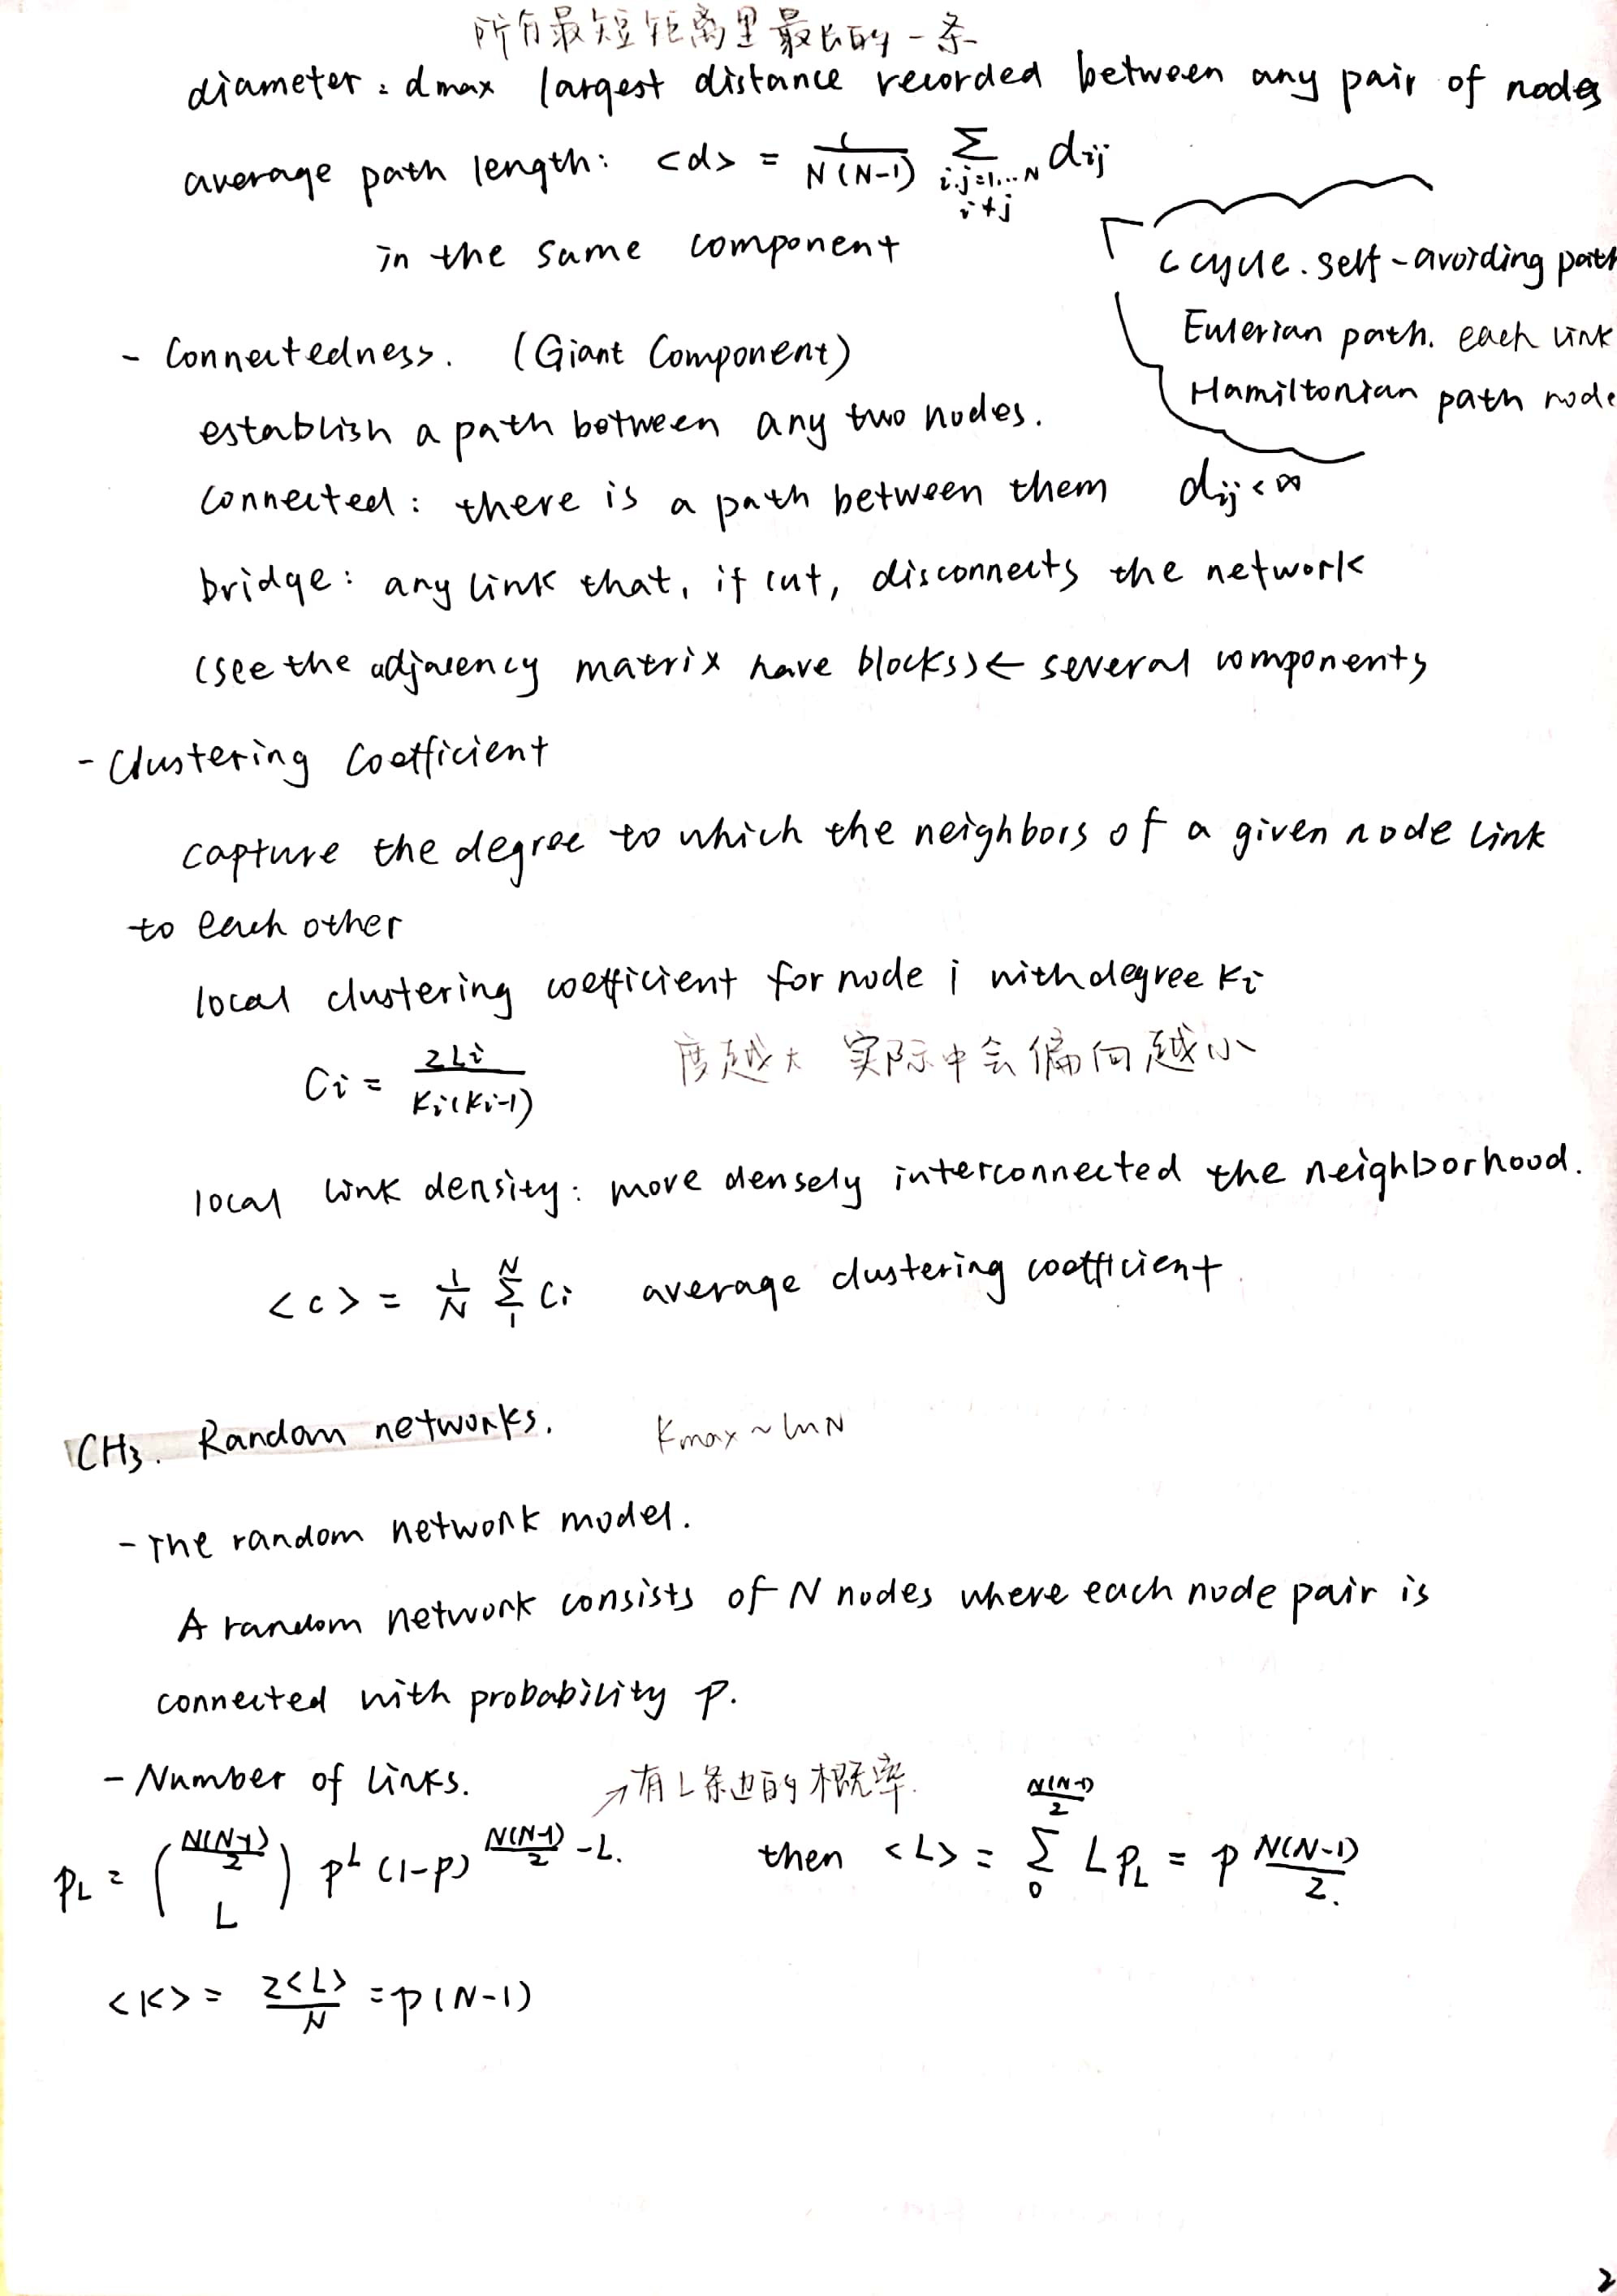 所有最短距离里最长的一条
diameter: dmax largest distance recorded between any pair of nodes
average path length: <d> = 1/(N(N-1)) Σ_{i.j=1...N, i≠j} dij
in the same component
(cycle. self-avoiding path
Eulerian path. each link
Hamiltonian path node
- Connectedness. (Giant Component)
establish a path between any two nodes.
connected: there is a path between them dij<∞
bridge: any link that, if cut, disconnects the network
(see the adjacency matrix have blocks) ← several components
- Clustering Coefficient
capture the degree to which the neighbors of a given node link
to each other
local clustering coefficient for node i with degree Ki
Ci = 2Li/(Ki(Ki-1)) 度越大 实际中会偏向越小
local link density: more densely interconnected the neighborhood.
<c> = 1/N Σ_1^N Ci average clustering coefficient
CH3. Random networks. Kmax ~ ln N
- The random network model.
A random network consists of N nodes where each node pair is
connected with probability p.
- Number of links. ↗有L条边的概率.
PL = (N(N-1)/2 L) p^L (1-p)^{N(N-1)/2 - L}. then <L> = Σ_0^{N(N-1)/2} L PL = p N(N-1)/2.
<K> = 2<L>/N = p(N-1)
2